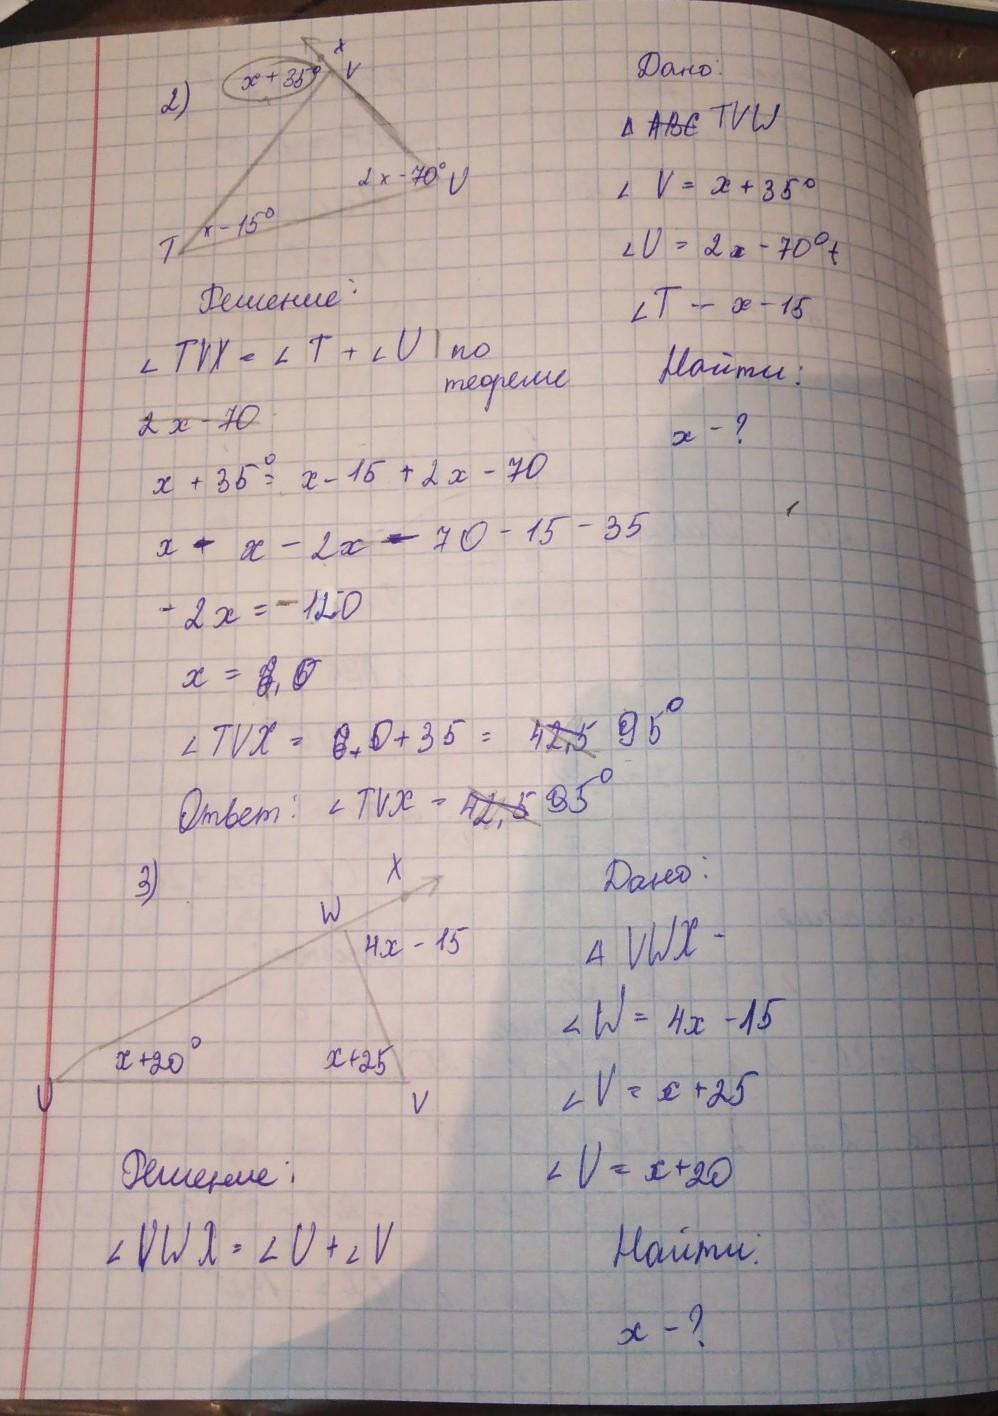 2)
x + 35°
x
V
2x - 70° U
x - 15°
T
Дано:
△ ABC TVU
∠ V = x + 35°
∠U = 2x - 70°
∠T - x - 15
Найти:
x - ?
Решение:
∠ TVX = ∠ T + ∠ U | по теореме
2x - 70
x + 35° = x - 15 + 2x - 70
x - x - 2x = - 70 - 15 - 35
- 2x = - 120
x =
∠ TVX = + 35 = 42,5 95°
Ответ: ∠ TVX = 42,5 95°
3)
X
W
4x - 15
x+20°
x+25
U
V
Дано:
△ VWX -
∠ W = 4x - 15
∠ V = x + 25
∠ U = x+20
Найти:
x - ?
Решение:
∠ VWX = ∠ U + ∠ V